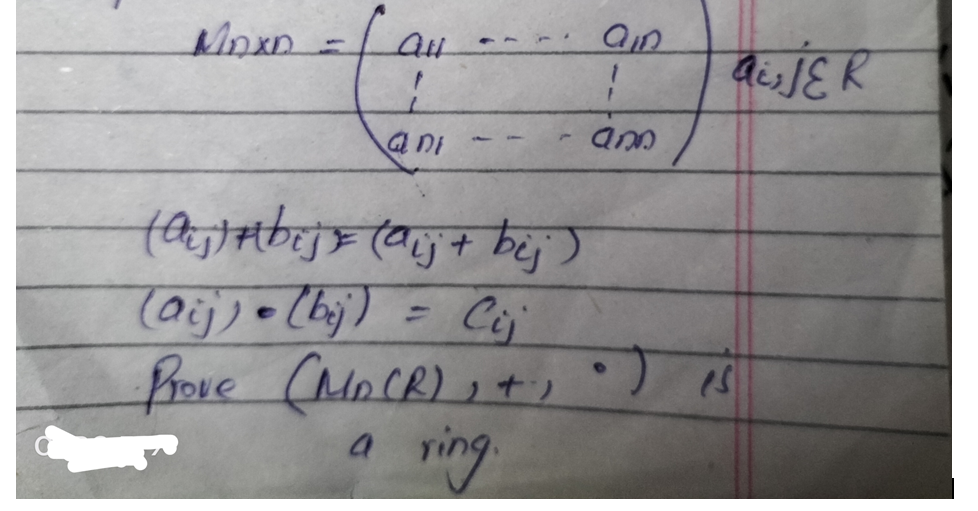 Mn×n = ( a11 ---- a1n ) ai,j ∈ R
an1 --- ann
(aij) + (bij) = (aij + bij)
(aij) • (bij) = Cij
Prove (Mn(R), +, •) is
a ring.